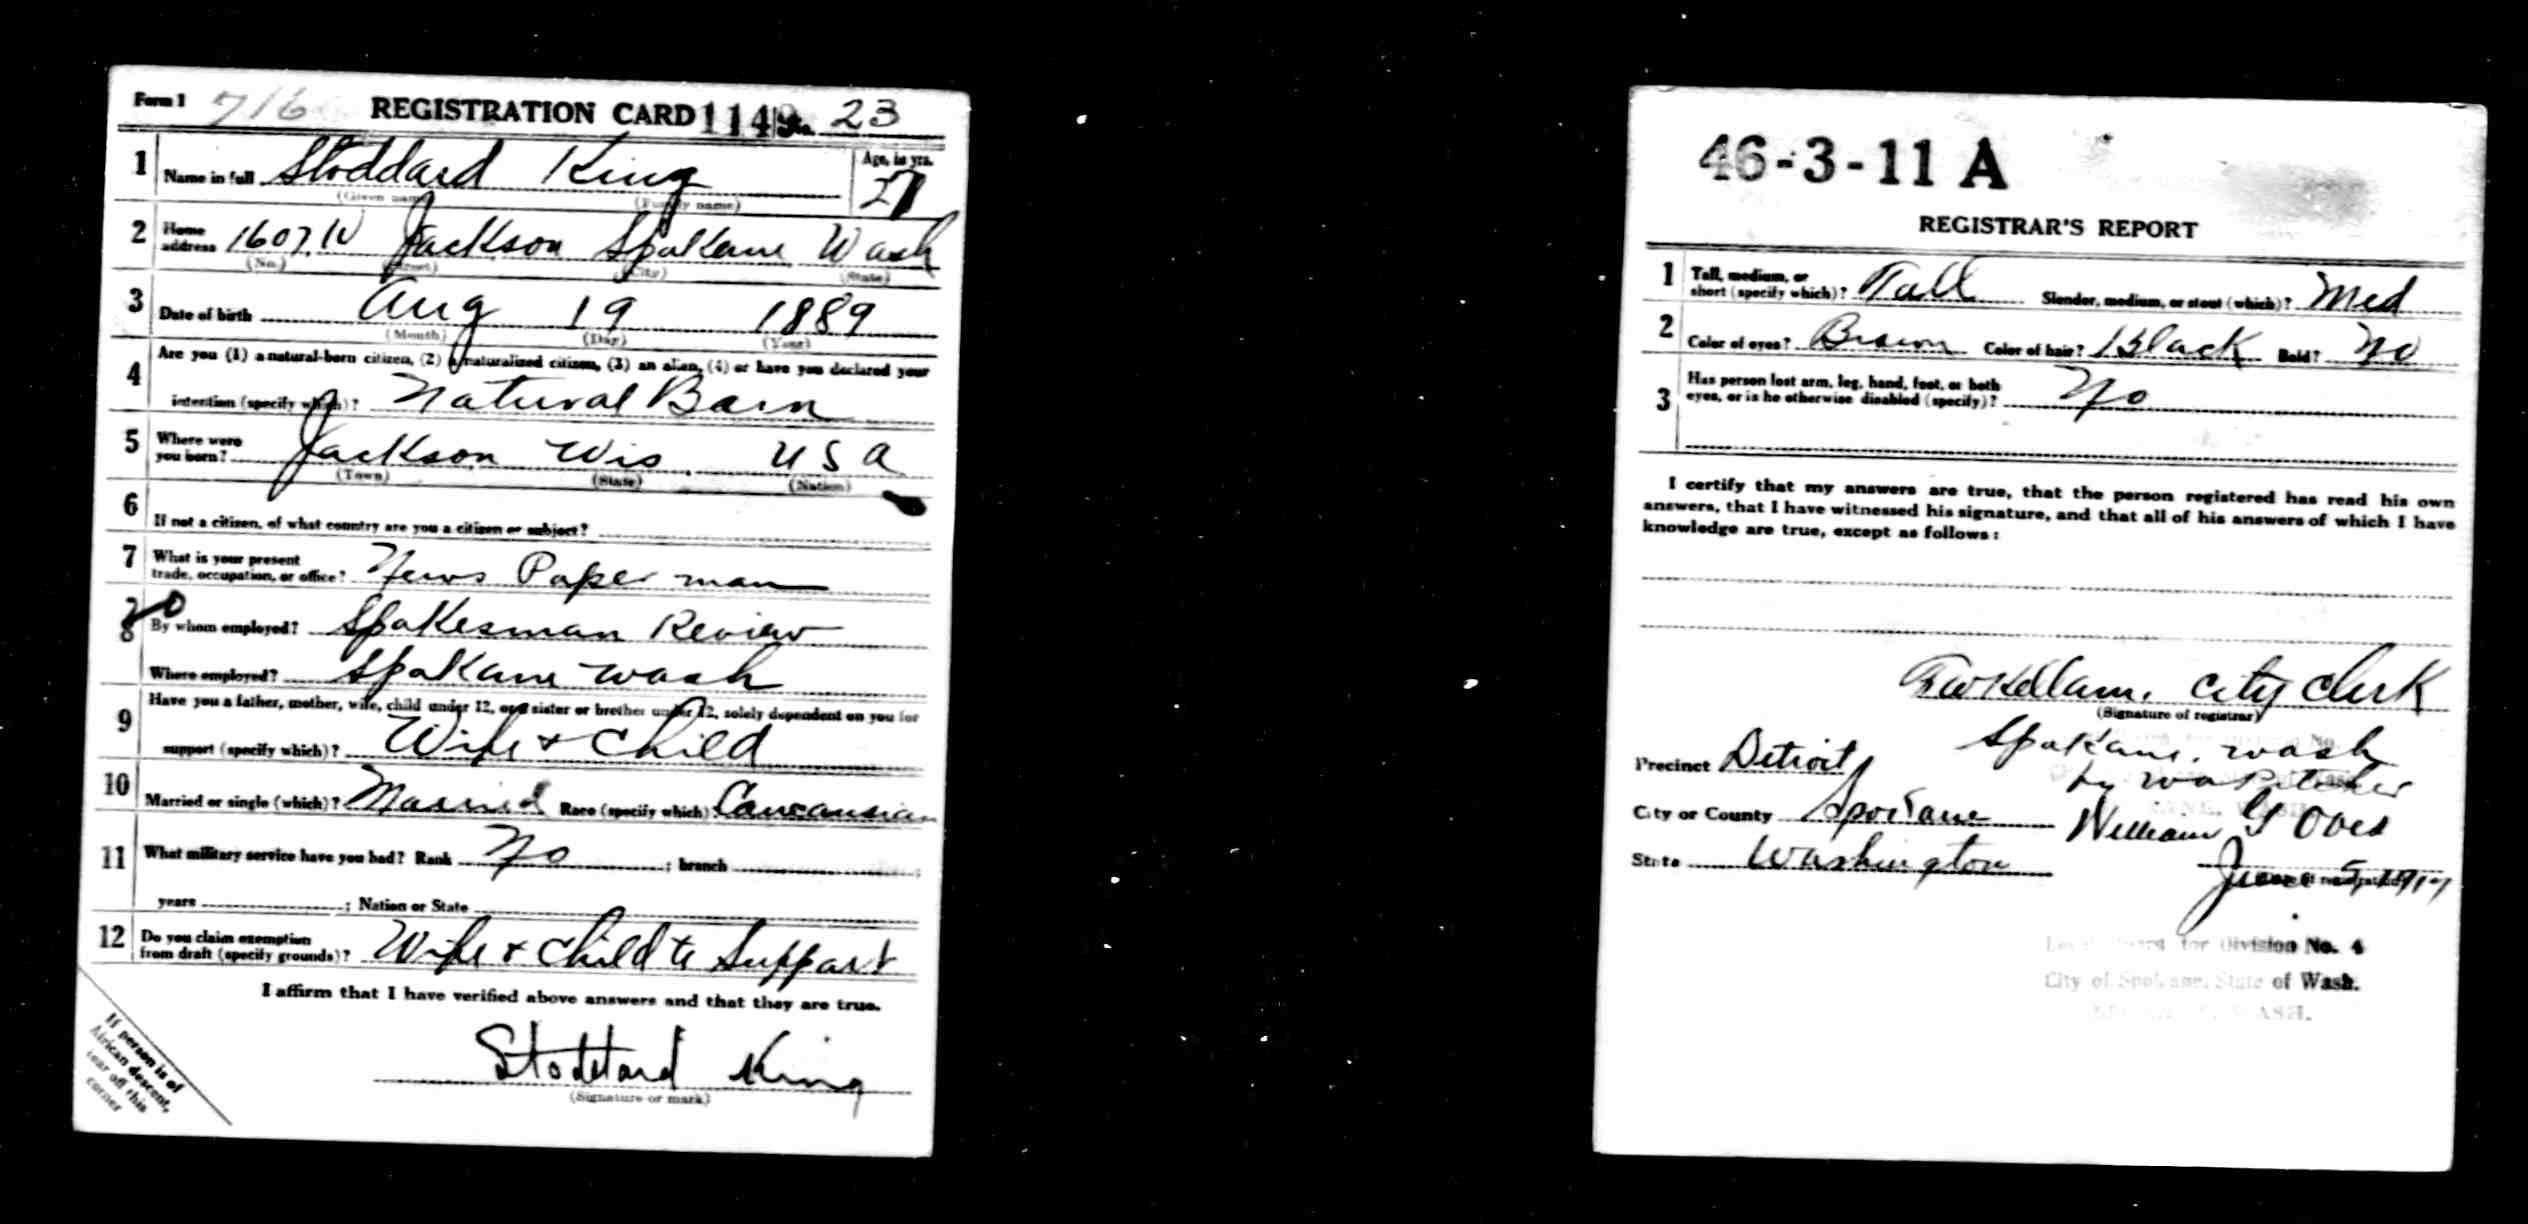 Form 1 716 REGISTRATION CARD 1149 No. 23
1 Name in full Stoddard King Age, in yrs.
(Given name) (Family name) 27
2 Home address 1607 N Jackson Spokane Wash
(No.) (Street) (City) (State)
3 Date of birth Aug 19 1889
(Month) (Day) (Year)
4 Are you (1) a natural-born citizen, (2) a naturalized citizen, (3) an alien, (4) or have you declared your
intention (specify which)? Natural Born
5 Where were you born? Jackson Wis. USA
(Town) (State) (Nation)
6 If not a citizen, of what country are you a citizen or subject?
7 What is your present trade, occupation, or office? News Paper man
8 By whom employed? Spokesman Review
Where employed? Spokane wash
9 Have you a father, mother, wife, child under 12, or a sister or brother under 12, solely dependent on you for
support (specify which)? Wife + Child
10 Married or single (which)? Married Race (specify which)? Caucausian
11 What military service have you had? Rank No ; branch ;
years ; Nation or State
12 Do you claim exemption from draft (specify grounds)? Wife + Child to Support
I affirm that I have verified above answers and that they are true.
Stoddard King
(Signature or mark)
If person is of
African descent,
tear off this
corner
46-3-11 A
REGISTRAR'S REPORT
1 Tall, medium, or short (specify which)? Tall Slender, medium, or stout (which)? Med
2 Color of eyes? Brown Color of hair? Black Bald? No
3 Has person lost arm, leg, hand, foot, or both
eyes, or is he otherwise disabled (specify)? No
I certify that my answers are true, that the person registered has read his own
answers, that I have witnessed his signature, and that all of his answers of which I have
knowledge are true, except as follows:
City Clerk
(Signature of registrar)
Spokane, wash
Precinct Detroit
by
City or County Spokane William G
State Washington June 5, 1917
Local Board for Division No. 4
City of Spokane, State of Wash.
WASH.